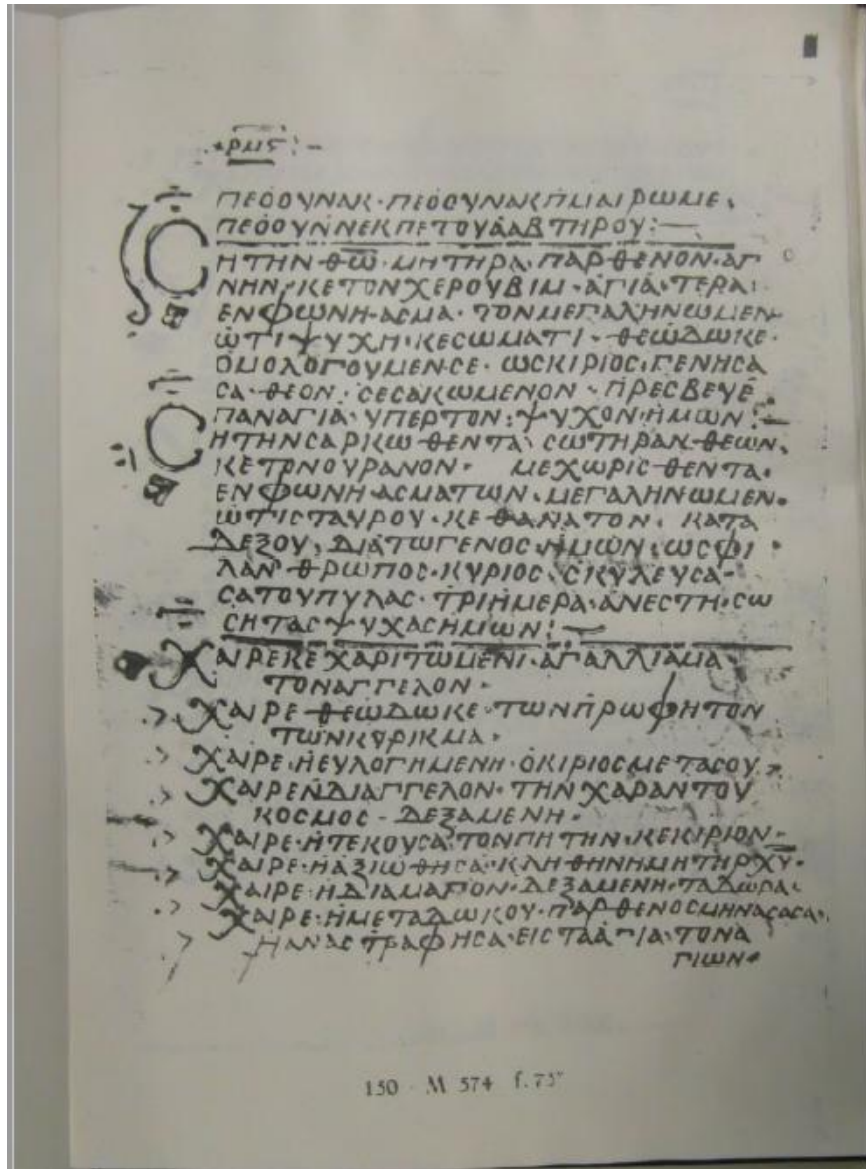 ⲣⲙⲋ
ⲡⲉⲟⲟⲩⲛⲁⲕ · ⲡⲉⲟⲟⲩⲛⲁⲕ ⲡⲙⲁⲓⲣⲱⲙⲉ ·
ⲡⲉⲟⲟⲩⲛⲛⲉⲕⲡⲉⲧⲟⲩⲁⲁⲃ ⲧⲏⲣⲟⲩ :—
Ⲥⲏⲧⲏⲛ ⲑⲱ̅ · ⲙⲏⲧⲏⲣⲁ · ⲡⲁⲣⲑⲉⲛⲟⲛ · ⲁⲅ
ⲛⲏⲛ · ⲕⲉⲧⲟⲛⲭⲉⲣⲟⲩⲃⲓⲙ · ⲁⲅⲓⲁ · ⲧⲉⲣⲁ :
ⲉⲛⲫⲱⲛⲏ · ⲁⲥⲙⲁ · ⲧⲟⲛⲙⲉⲅⲁⲗⲏⲛⲱⲙⲉⲛ ·
ⲱⲧⲓⲯⲩⲭⲏ · ⲕⲉⲥⲱⲙⲁⲧⲓ · ⲑⲉⲱⲇⲱⲕⲉ ·
ⲟⲙⲟⲗⲟⲅⲟⲩⲙⲉⲛⲥⲉ · ⲱⲥⲕⲓⲣⲓⲟⲥ · ⲅⲉⲛⲏⲥⲁ
ⲥⲁ · ⲑⲉⲟⲛ · ⲥⲉⲥⲁⲕⲱⲙⲉⲛⲟⲛ · ⲡⲣⲉⲥⲃⲉⲩⲉ
ⲡⲁⲛⲁⲅⲓⲁ · ⲩⲡⲉⲣⲧⲟⲛ : ⲯⲩⲭⲟⲛ · ⲏⲙⲱⲛ :—
Ⲥⲏⲧⲏⲛⲥⲁⲣⲕⲱⲑⲉⲛⲧⲁ · ⲥⲱⲧⲏⲣⲁⲛ · ⲑⲉⲱⲛ ·
ⲕⲉⲧⲟⲛⲟⲩⲣⲁⲛⲟⲛ · ⲙⲉⲭⲱⲣⲓⲥⲑⲉⲛⲧⲁ ·
ⲉⲛⲫⲱⲛⲏ · ⲁⲥⲙⲁⲧⲱⲛ · ⲙⲉⲅⲁⲗⲏⲛⲱⲙⲉⲛ ·
ⲱⲧⲓⲥⲧⲁⲩⲣⲟⲩ · ⲕⲉⲑⲁⲛⲁⲧⲟⲛ · ⲕⲁⲧⲁ
ⲇⲉⲝⲟⲩ · ⲇⲓⲁⲧⲱⲅⲉⲛⲟⲥ · ⲏⲙⲱⲛ · ⲱⲥⲫⲓ
ⲗⲁⲛⲑⲣⲱⲡⲟⲥ · ⲕⲩⲣⲓⲟⲥ · ⲥⲕⲩⲗⲉⲩⲥⲁ ·
ⲥⲁⲧⲟⲩⲡⲩⲗⲁⲥ · ⲧⲣⲓⲏⲙⲉⲣⲁ · ⲁⲛⲉⲥⲧⲏ · ⲥⲱ
ⲥⲏⲧⲁⲥⲯⲩⲭⲁⲥⲏⲙⲱⲛ :—
Ⲭⲁⲓⲣⲉⲕⲉⲭⲁⲣⲓⲧⲱⲙⲉⲛⲓ · ⲁⲅⲁⲗⲗⲓⲁⲙⲁ ·
ⲧⲟⲛⲁⲅⲅⲉⲗⲟⲛ ·
Ⲭⲁⲓⲣⲉ ⲑⲉⲱⲇⲱⲕⲉ · ⲧⲱⲛⲡⲣⲱⲫⲏⲧⲟⲛ
ⲧⲱⲛⲕⲩⲣⲓⲕⲙⲁ ·
Ⲭⲁⲓⲣⲉ · ⲏⲉⲩⲗⲟⲅⲏⲙⲉⲛⲏ · ⲟⲕⲓⲣⲓⲟⲥⲙⲉⲧⲁⲥⲟⲩ
Ⲭⲁⲓⲣⲉⲛⲇⲓⲁⲅⲅⲉⲗⲟⲛ · ⲧⲏⲛⲭⲁⲣⲁⲛⲧⲟⲩ
ⲕⲟⲥⲙⲟⲥ · ⲇⲉⲝⲁⲙⲉⲛⲏ ·
Ⲭⲁⲓⲣⲉ · ⲏⲧⲉⲕⲟⲩⲥⲁ · ⲧⲟⲛⲡⲏⲧⲏⲛ · ⲕⲉⲕⲓⲣⲓⲟⲛ ·
Ⲭⲁⲓⲣⲉ · ⲏⲁⲝⲓⲱⲑⲏⲥⲁ · ⲕⲗⲏⲑⲏⲛⲏⲙⲏⲧⲏⲣⲭ̅ⲩ̅ ·
Ⲭⲁⲓⲣⲉ · ⲏⲇⲓⲁⲙⲁⲅⲟⲛ · ⲇⲉⲝⲁⲙⲉⲛⲏ · ⲧⲁⲇⲱⲣⲁ ·
Ⲭⲁⲓⲣⲉ · ⲏⲙⲉⲧⲁⲇⲱⲕⲟⲩ · ⲡⲁⲣⲑⲉⲛⲟⲥⲙⲏⲛⲁⲥⲁⲥⲁ ·
ⲏⲁⲛⲁⲥⲧⲣⲁⲫⲏⲥⲁ · ⲉⲓⲥⲧⲁⲁⲅⲓⲁ · ⲧⲟⲛⲁ
ⲅⲓⲱⲛ ·
150 · M 574 f. 73ᵛ